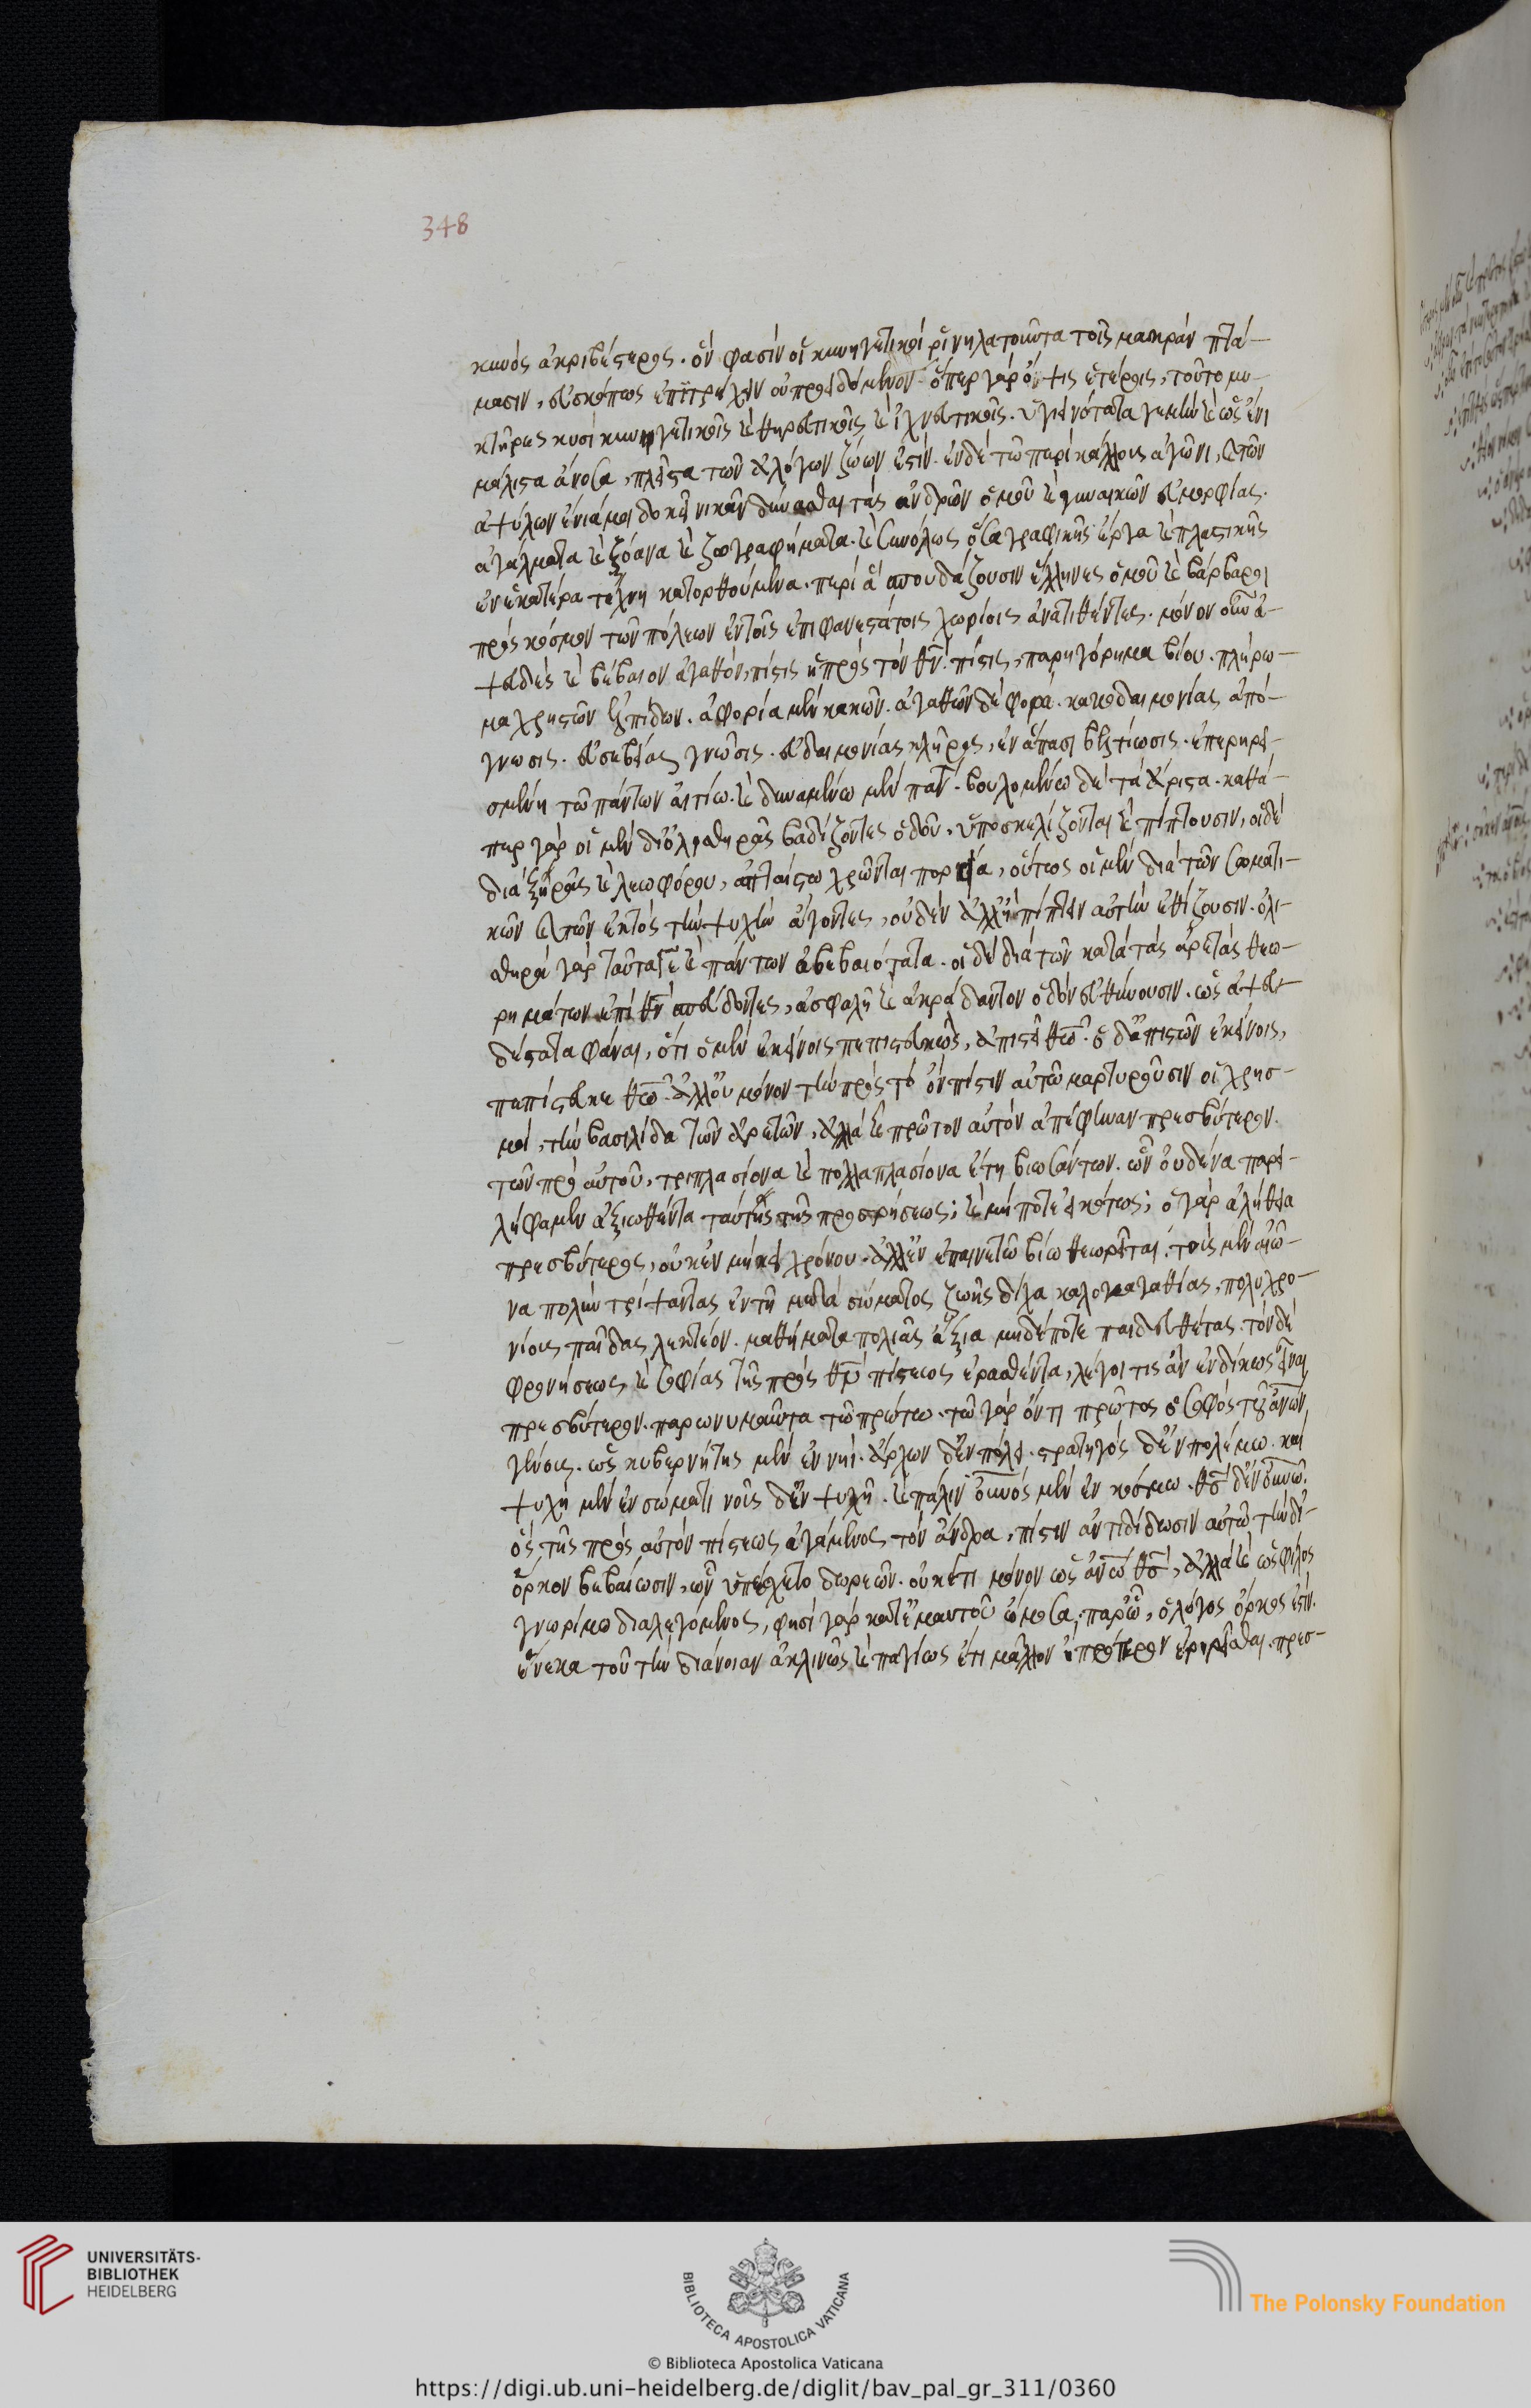 348
κυνὸς ἀκριβέστερος. ὅν φασὶν οἱ κυνηγετικοὶ ῥινηλατοῦντα τοῖς μακρὰν πτώ-
μασιν, εὐσκόπως ἐπιτρέχειν οὐ προϊδόμενον. ὅπερ γὰρ ὄψις ἑτέροις, τοῦτο μυ-
κτῆρες κυσὶ κυνηγετικοῖς καὶ θηρευτικοῖς καὶ ἰχνευτικοῖς. ὑγιεινότατα γεμὴν καὶ ὡς ἔνι
μάλιστα ἄνοσα, πλεῖστα τῶν ἀλόγων ζώων ἐστίν. ἐν δὲ τῶ περὶ κάλλους ἀγῶνι, καὶ τῶν
ἀψύχων ἔνιά μοι δοκεῖ νικᾶν δύνασθαι τὰς ἀνδρῶν ὁμοῦ καὶ γυναικῶν εὐμορφίας.
ἀγάλματα καὶ ξόανα καὶ ζωγραφήματα. καὶ συνόλως ὅσα γραφικῆς ἔργα καὶ πλαστικῆς
ἐν ἑκατέρα τέχνη κατορθούμενα. περὶ ἃ σπουδάζουσιν ἕλληνες ὁμοῦ καὶ βάρβαροι
πρὸς κόσμον τῶν πόλεων ἐν τοῖς ἐπιφανεστάτοις χωρίοις ἀνατιθέντες. μόνον οὖν ἀ-
ψευδὲς καὶ βέβαιον ἀγαθόν, πίστις ἡ πρὸς τὸν θν̄. πίστις, παρηγόρημα βίου. πλήρω-
μα χρηστῶν ἐλπίδων. ἀφορία μὲν κακῶν. ἀγαθῶν δὲ φορά. κακοδαιμονίας ἀπό-
γνωσις. εὐσεβείας γνῶσις. εὐδαιμονίας κλῆρος, ἐν ἅπασι βελτίωσις. ἐπερηρει-
σμένη τῶ πάντων αἰτίω. καὶ δυναμένω μὲν πάντ̄. βουλομένω δὲ τὰ ἄριστα. καθά-
περ γὰρ οἱ μὲν δι' ὀλισθηρᾶς βαδίζοντες ὁδοῦ, ὑποσκελίζονται καὶ πίπτουσιν, οἱ δὲ
διὰ ξηρᾶς καὶ λεωφόρου, ἀπταίστω χρῶνται πορεία, οὕτως οἱ μὲν διὰ τῶν σωματι-
κῶν καὶ τῶν ἐκτὸς τὴν ψυχὴν ἄγοντες, οὐδὲν ἀλλ' ἢ πίπτειν αὐτὴν ἐθίζουσιν. ὀλι-
σθηρὰ γὰρ ταῦτά γε καὶ πάντων ἀβεβαιότατα. οἱ δὲ διὰ τῶν κατὰ τὰς ἀρετὰς θεω-
ρημάτων ἐπὶ θν̄ σπεύδοντες, ἀσφαλῆ καὶ ἀκράδαντον ὁδὸν εὐθύνουσιν. ὡς ἀψευ-
δέστατα φάναι, ὅτι ὁ μὲν ἐκείνοις πεπιστευκὼς, ἀπιστεῖ θω̄. ὁ δ' ἀπιστῶν ἐκείνοις,
πεπίστευκε θω̄. ἀλλ' οὐ μόνον τὴν πρὸς τὸ ὂν πίστιν αὐτῶ μαρτυροῦσιν οἱ χρησ-
μοί, τὴν βασιλίδα τῶν ἀρετῶν, ἀλλὰ καὶ πρῶτον αὐτὸν ἀπέφηναν πρεσβύτερον.
τῶν πρὸ αὐτοῦ, τριπλασίονα καὶ πολλαπλασίονα ἔτη βιωσάντων. ὧν οὐδένα παρει-
λήφαμεν ἀξιωθέντα ταύτης τῆς προσρήσεως; καὶ μήποτε εἰκότως; ὁ γὰρ ἀληθεία
πρεσβύτερος, οὐκ ἐν μήκει χρόνου. ἀλλ' ἐν ἐπαινετῶ βίω θεωρεῖται. τοὺς μὲν αἰῶ-
να πολὺν τρίψαντας ἐν τῇ μετὰ σώματος ζωῆς δίχα καλοκαγαθίας, πολυχρο-
νίους παῖδας λεκτέον. μαθήματα πολιᾶς ἄξια μηδέποτε παιδευθέντας. τὸν δὲ
φρονήσεως καὶ σοφίας τῆς πρὸς θν̄ πίστεως ἐρασθέντα, λέγοι τις ἂν ἐνδίκως εἶναι
πρεσβύτερον. παρωνυμοῦντα τῶ πρώτω. τῶ γὰρ ὄντι πρῶτος ὁ σοφὸς τοῦ ἀνων̄
γένους. ὡς κυβερνήτης μὲν ἐν νηί. ἄρχων δ' ἐν πόλει. στρατηγὸς δ' ἐν πολέμω. καὶ
ψυχὴ μὲν ἐν σώματι νοῦς δ' ἐν ψυχῆ. καὶ πάλιν οὐνος̄ μὲν ἐν κόσμω. θς̄ δ' ἐν οὐνω̄.
ὃς τῆς πρὸς αὐτὸν πίστεως ἀγάμενος τὸν ἄνδρα, πίστιν ἀντιδίδωσιν αὐτῶ τὴν δι'
ὅρκου βεβαίωσιν, ὧν ὑπέσχετο δωρεῶν. οὐκέτι μόνον ὡς ἀνω̄ θς̄, ἀλλὰ καὶ ὡς φίλος
γνωρίμω διαλεγόμενος, φησὶ γὰρ κατ' ἐμαυτοῦ ὤμοσα, παρ' ὧ, ὁ λόγος ὅρκος ἐστίν.
ἕνεκα τοῦ τὴν διάνοιαν ἀκλινῶς καὶ παγίως ἔτι μᾶλλον ἢ πρότερον ἐρηρεῖσθαι. πρεσ-
UNIVERSITÄTS-
BIBLIOTHEK
HEIDELBERG
BIBLIOTECA APOSTOLICA VATICANA
The Polonsky Foundation
© Biblioteca Apostolica Vaticana
https://digi.ub.uni-heidelberg.de/diglit/bav_pal_gr_311/0360